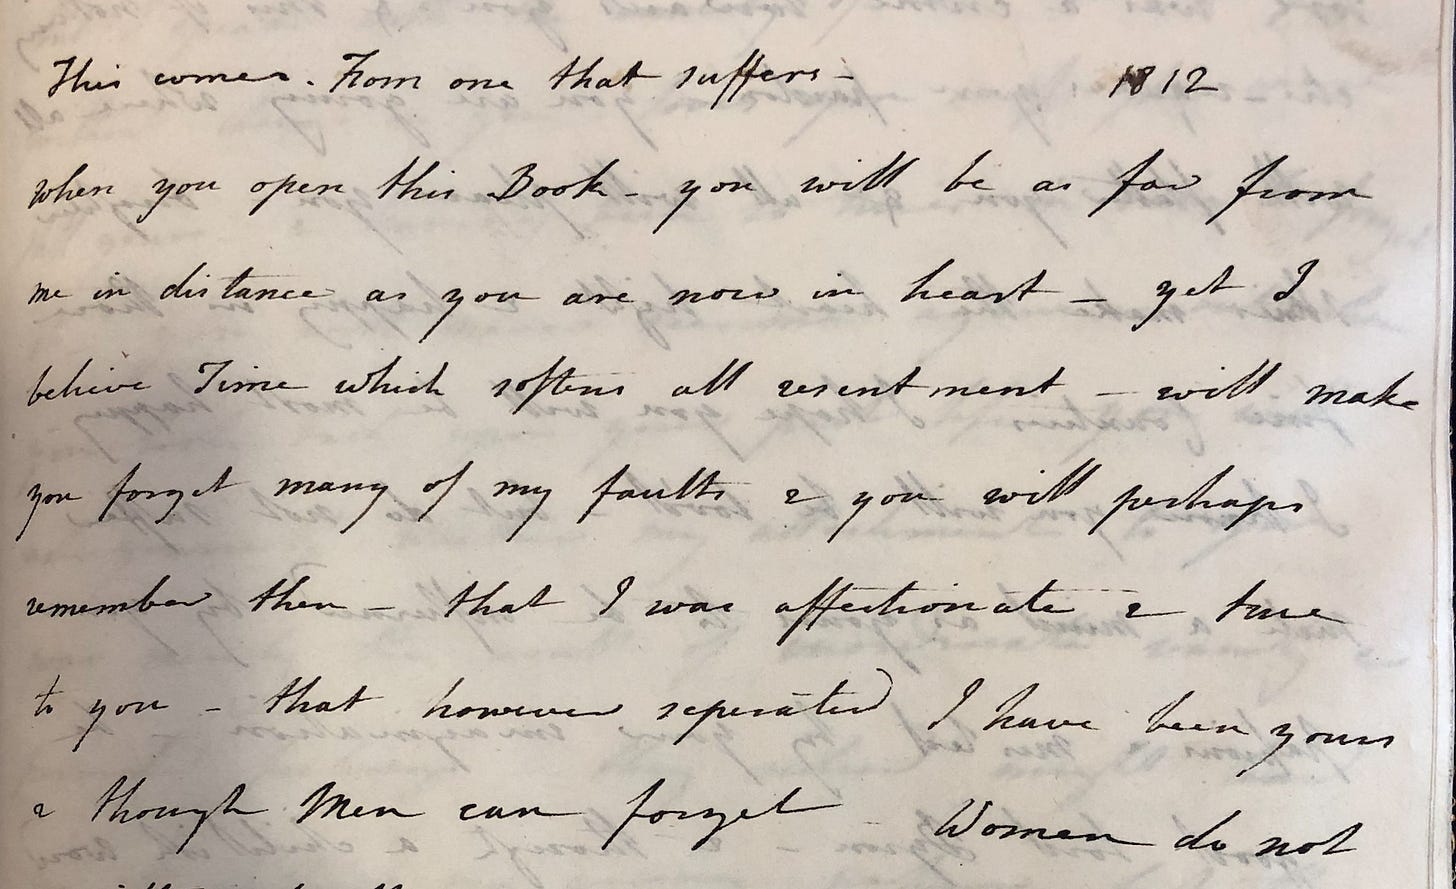 This comes. From one that suffers – 1812
when you open this Book – you will be as far from
me in distance as you are now in heart – yet I
believe Time which softens all resentment – will make
you forget many of my faults & you will perhaps
remember then – that I was affectionate & true
to you – that however seperated I have been yours
& though Men can forget Women do not